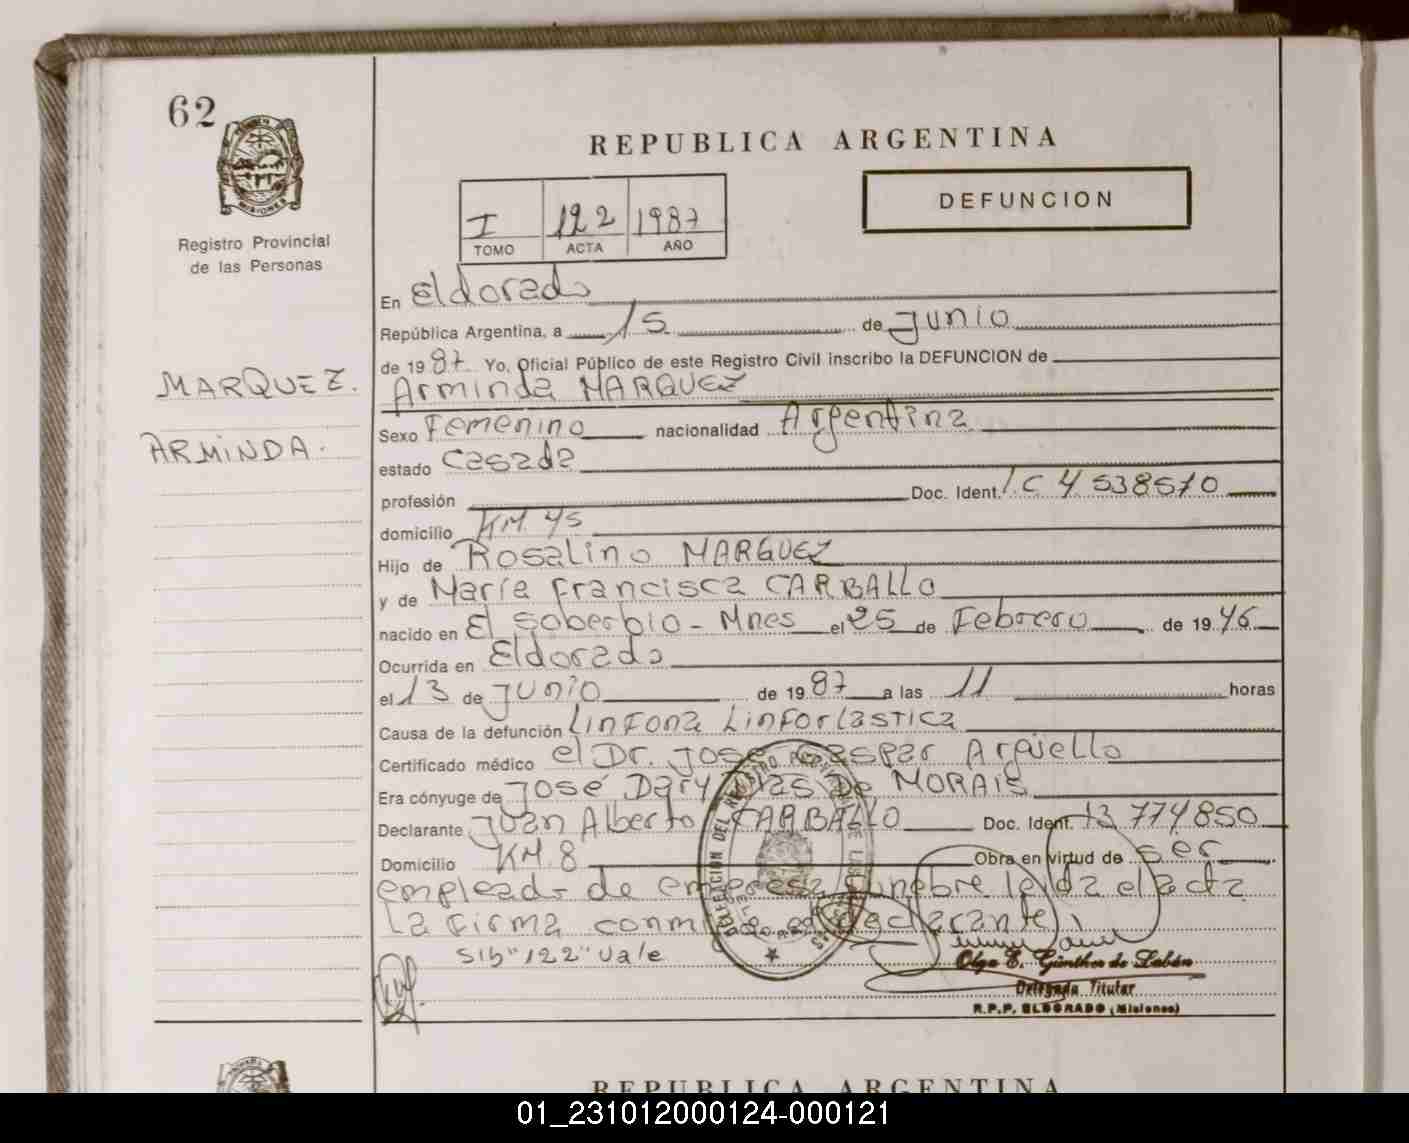 62
MISIONES
Registro Provincial
de las Personas
MARQUEZ.
ARMINDA.
REPUBLICA ARGENTINA
I 122 1987
TOMO ACTA AÑO
DEFUNCION
En Eldorado
República Argentina, a 15 de Junio
de 1987 Yo, Oficial Público de este Registro Civil inscribo la DEFUNCION de
Arminda MARQUEZ
Sexo Femenino nacionalidad Argentina
estado casada
profesión Doc. Ident. L.C 4 538570
domicilio KM. 45
Hijo de Rosalino MARQUEZ
y de María Francisca CARBALLO
nacido en El Soberbio - Mnes el 25 de Febrero de 1946
Ocurrida en Eldorado
el 13 de Junio de 1987 a las 11 horas
Causa de la defunción Linfona Linforlastica
Certificado médico el Dr. José Gaspar Argüello
Era cónyuge de José Dary Dias De MORAIS
Declarante Juan Alberto CARBALLO Doc. Ident. 13 774850
Domicilio KM. 8 Obra en virtud de ser
empleado de empresa funebre leida el acta
La firma conmigo el declarante,
S/b "122" Vale
DELEGACION DEL REGISTRO
Olga E. Günther de Labán
Delegada Titular
R.P.P. ELDORADO (Misiones)
REPUBLICA ARGENTINA
01_231012000124-000121